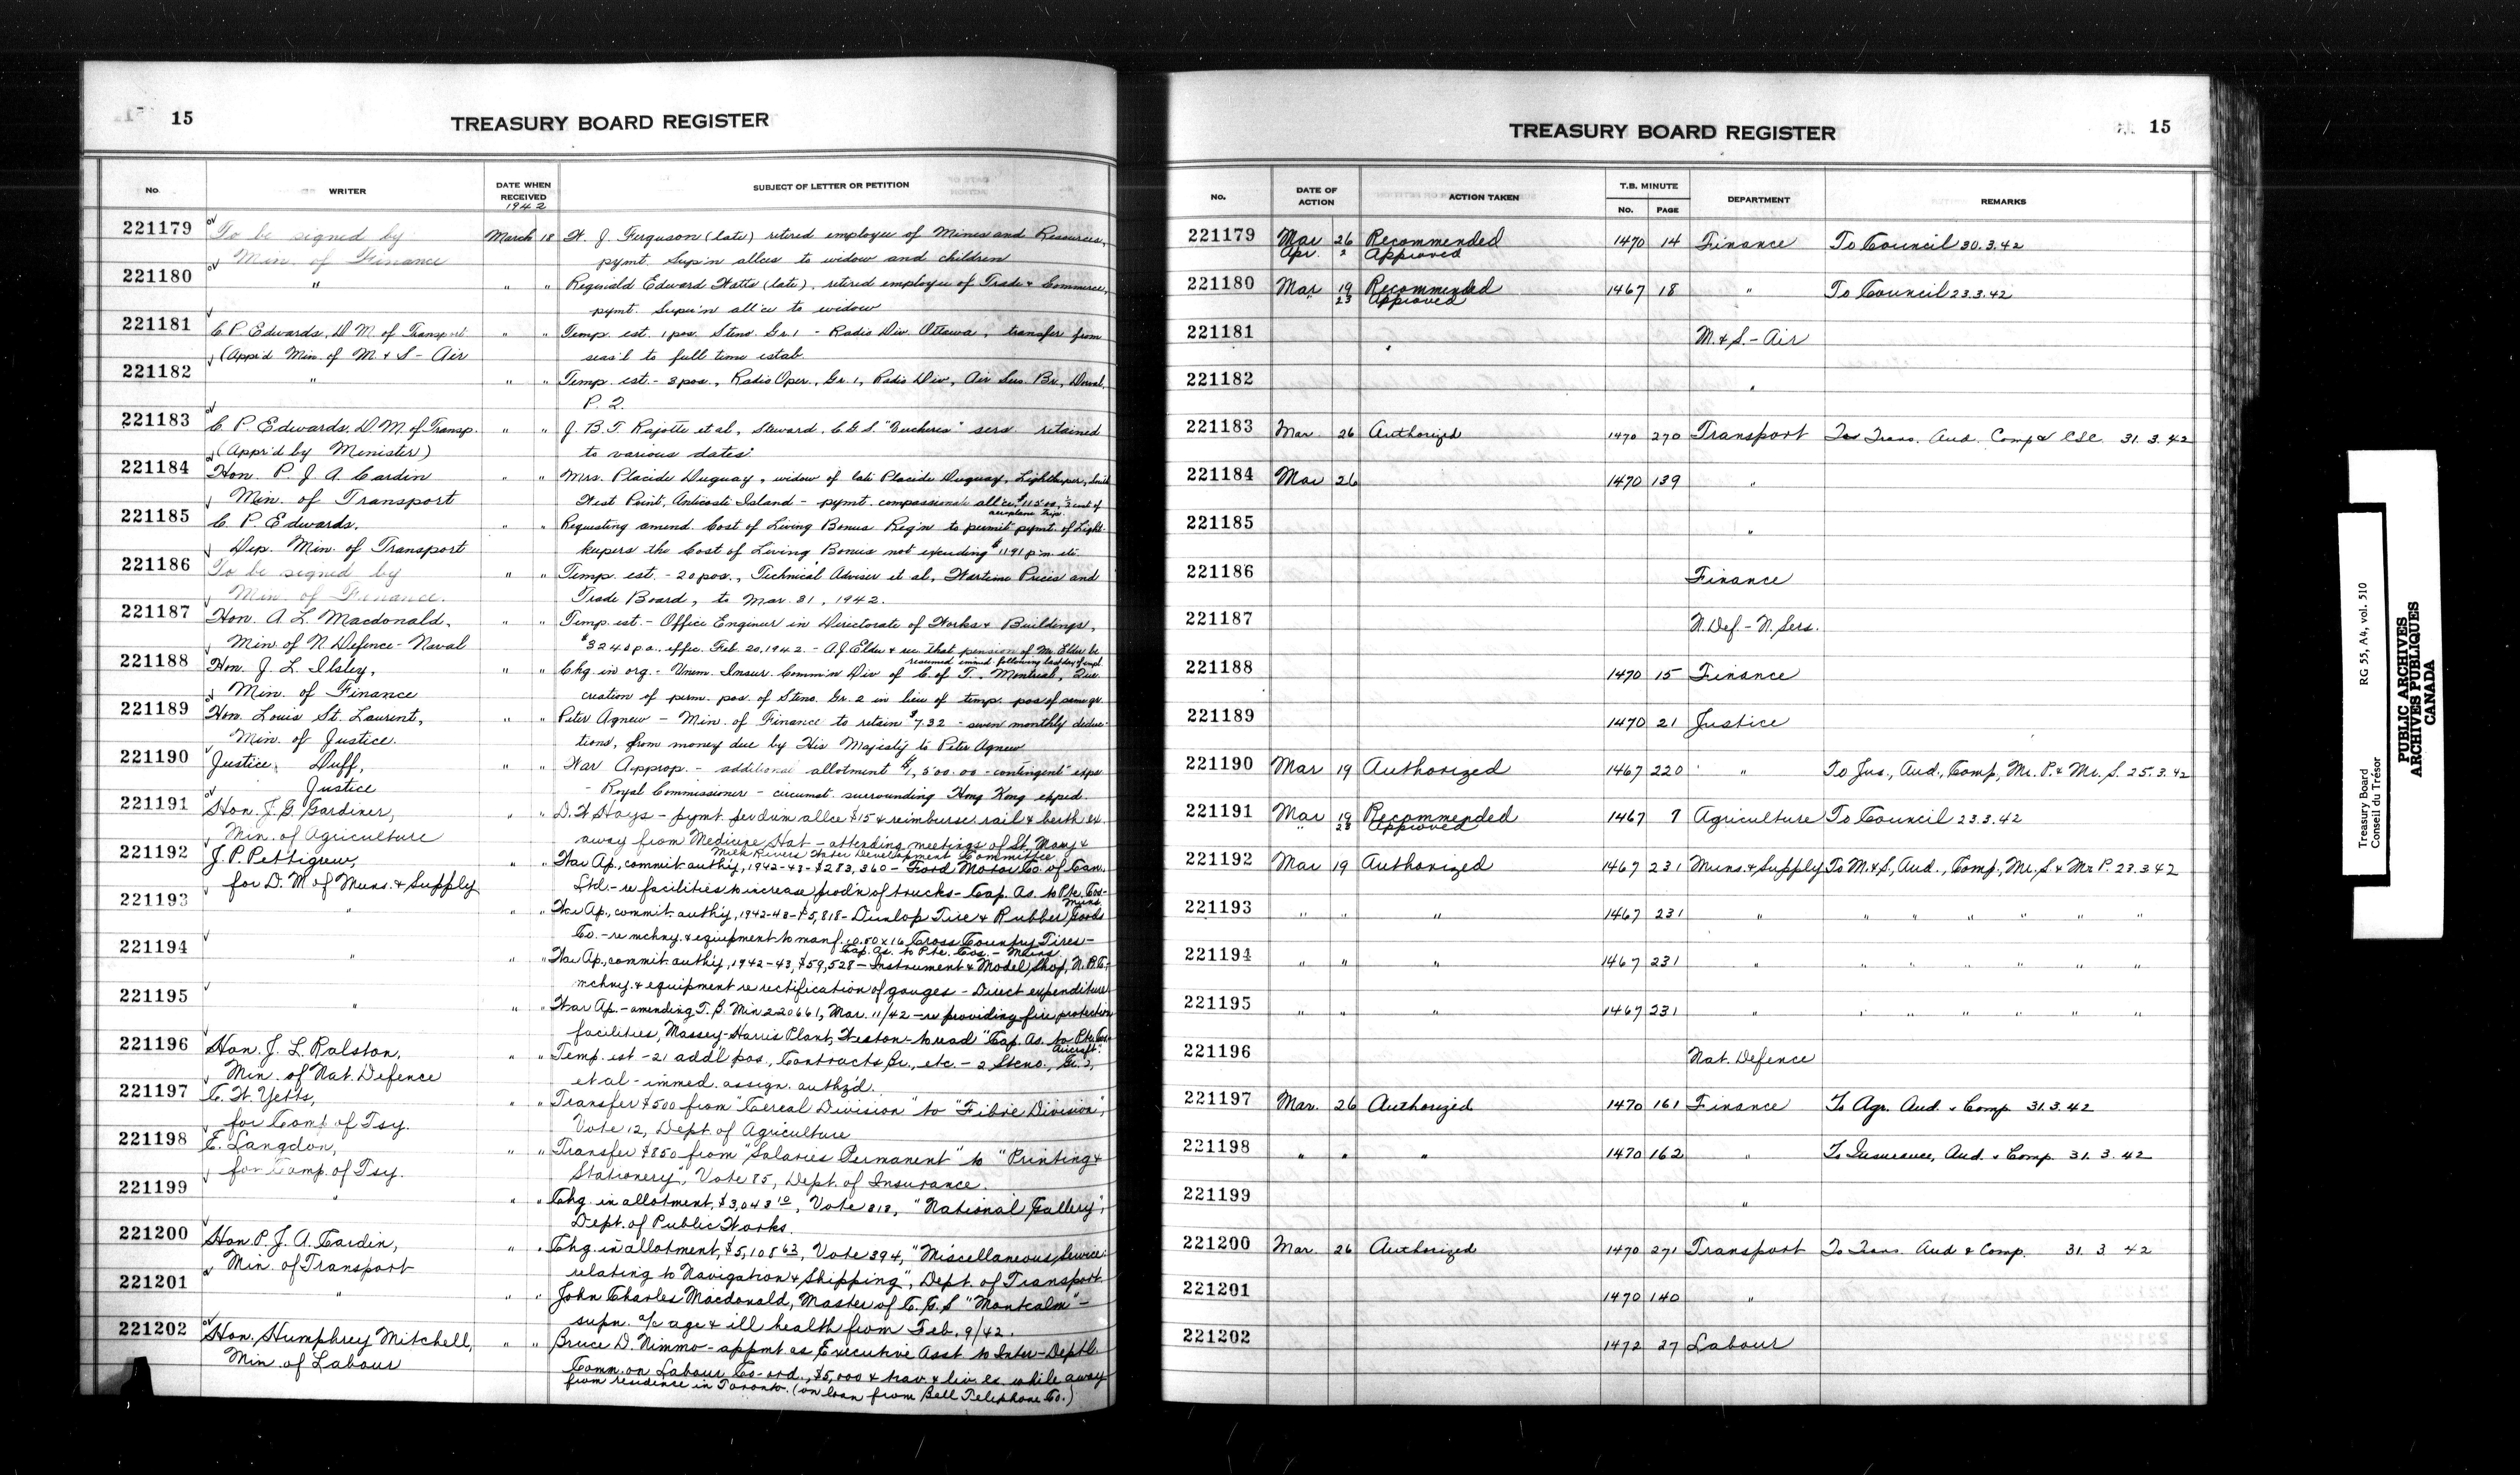 15
TREASURY BOARD REGISTER
No.
WRITER
DATE WHEN RECEIVED
1942
SUBJECT OF LETTER OR PETITION
221179
To be signed by
March 18
J. Ferguson (late) retired employee of Mines and Resources,
Min. of Finance
pymt. Sup'n allce to widow and children
221180
" " "
Reginald Edward Watts (late), retired employee of Trade & Commerce,
pymt. Super'n all'ce to widow
221181
C. P. Edwards, D.M. of Transport
" "
Temp. est. 1 pos. Steno. Gr. 1 - Radio Div. Ottawa, transfer from
(App'd Min. of M. & S - Air
seas'l to full time estab.
221182
" " "
Temp. est. - 3 pos., Radio Oper., Gr. 1, Radio Div., Air Ser. Br., Dorval,
P. 2.
221183
C. P. Edwards, D.M. of Transp.
" "
J. B. T. Rajotte et al, Steward, C.G.S. "Bucheres" sers retained
(Appr'd by Minister)
to various dates
221184
Hon. P. J. A. Cardin
" "
Mrs. Placide Duguay, widow of late Placide Duguay, Lightkeeper,
Min. of Transport
West Point, Anticosti Island - pymt. compassionate all'ce, $115.00, ½ cost of
aeroplane trip.
221185
C. P. Edwards,
" "
Requesting amend. Cost of Living Bonus Reg'n to permit pymt. of Light-
Dep. Min. of Transport
keepers the Cost of Living Bonus not exceeding $11.91 p.m. etc.
221186
To be signed by
" "
Temp. est. - 20 pos., Technical Adviser et al, Wartime Prices and
Min. of Finance.
Trade Board, to Mar. 31, 1942.
221187
Hon. A. L. Macdonald,
Temp. est. - Office Engineer in Directorate of Works & Buildings,
Min of N. Defence - Naval
$3240 p.a. effec. Feb. 20, 1942 - A.J. Elder & rec. that pension of Mr. Elder be
resumed immed. following last day of empl.
221188
Hon. J. L. Ilsley,
" "
Chg. in org. - Unem. Insur. Comm'n Div of C. of T., Montreal, Que
Min. of Finance
creation of perm. pos. of Steno. Gr. 2 in lieu of temp. pos of same gr.
221189
Hon. Louis St. Laurent,
" "
Peter Agnew - Min. of Finance to retain $7.32 - seven monthly deduc-
Min. of Justice.
tions, from money due by His Majesty to Peter Agnew
221190
Justice Duff,
" "
War Approp. - additional allotment $1,500.00 - "contingent" expe
Justice
- Royal Commissioner - circumst. surrounding Hong Kong exped.
221191
Hon. J. G. Gardiner,
" "
D. W. Hays - pymt. per diem allce $15 & reimburse rail & berth ex.
Min. of Agriculture
away from Medicine Hat - attending meetings of St. Mary &
Milk Rivers Water Development Committee
221192
J. P. Pettigrew,
" "
War Ap., commit. auth'y, 1942-43 - $283,360 - Ford Motor Co. of Can.
for D. M. of Muns. & Supply
Ltd. - re facilities to increase prod'n of trucks - Cap. As. to Pte. Cos -
Muns.
221193
" " "
War Ap., commit. auth'y, 1942-43 - $5,818 - Dunlop Tire & Rubber Goods
Co. - re mchny. & equipment to manf. 10.50 x 16 Cross Country Tires -
Cap. As. to Pte. Cos. - Muns.
221194
" " "
War Ap., commit. auth'y, 1942-43, $59,528 - Instrument & Model Shop, N.R.C.,
mchny. & equipment re rectification of gauges - Direct expenditure
221195
" " "
War Ap. - amending T. B. Min 220661, Mar. 11/42 - re providing fire protection
facilities, Massey-Harris Plant, Weston - to read "Cap. As. to Pte. Cos -
Aircraft".
221196
Hon. J. L. Ralston,
" "
Temp. est - 21 add'l pos., Contracts Br., etc. - 2 Steno., Gr. 2,
Min. of Nat. Defence
et al - immed. assign. authz'd.
221197
C. W. Yetts,
" "
Transfer $500 from "Cereal Division" to "Fibre Division",
for Comp. of Tsy.
Vote 12, Dept. of Agriculture
221198
E. Langdon,
" "
Transfer $850 from "Salaries Permanent" to "Printing &
for Comp. of Tsy.
Stationery", Vote 85, Dept. of Insurance.
221199
" " "
Chg. in allotment, $3,043.10, Vote 818, "National Gallery",
Dept. of Public Works.
221200
Hon. P. J. A. Cardin,
" "
Chg. in allotment, $5,108.63, Vote 394, "Miscellaneous Service
Min. of Transport
relating to Navigation & Shipping", Dept. of Transport
221201
" " "
John Charles Macdonald, Master of C. G. S "Montcalm" -
supn. a/c age & ill health from Feb. 9/42.
221202
Hon. Humphrey Mitchell,
" "
Bruce D. Nimmo - appmt as Executive Asst. to Inter-Deptl.
Min. of Labour
Comm. on Labour Co-ord., $5,000 & trav. & liv. ex. while away
from residence in Toronto. (on loan from Bell Telephone Co.)
TREASURY BOARD REGISTER
15
No.
DATE OF ACTION
ACTION TAKEN
T.B. MINUTE
No.
PAGE
DEPARTMENT
REMARKS
221179 Mar 26 Recommended 1470 14 Finance To Council 30.3.42
Apr. 2 Approved
221180 Mar 19 Recommended 1467 18 " To Council 23.3.42
" 23 Approved
221181 M. & S. - Air
221182 "
221183 Mar. 26 Authorized 1470 270 Transport To Trans. Aud. Comp & CSC. 31.3.42
221184 Mar 26 1470 139 "
221185 "
221186 Finance
221187 N. Def. - N. Sers.
221188 1470 15 Finance
221189 1470 21 Justice
221190 Mar 19 Authorized 1467 220 " To Jus., Aud., Comp, Mr. P. & Mr. S. 25.3.42
221191 Mar 19 Recommended 1467 7 Agriculture To Council 23.3.42
" 23 Approved
221192 Mar 19 Authorized 1467 231 Muns. & Supply To M & S, Aud., Comp., Mr. S. & Mr P. 23.3.42
221193 " " " 1467 231 " " " " " " "
221194 " " " 1467 231 " " " " " " "
221195 " " " 1467 231 " " " " " " "
221196 Nat. Defence
221197 Mar. 26 Authorized 1470 161 Finance To Agr. Aud. & Comp 31.3.42
221198 " " " 1470 162 " To Insurance, Aud. & Comp. 31.3.42
221199 "
221200 Mar. 26 Authorized 1470 271 Transport To Trans. Aud & Comp. 31 3 42
221201 1470 140 "
221202 1472 27 Labour
Treasury Board RG 55, A4, vol. 510
Conseil du Trésor
PUBLIC ARCHIVES
ARCHIVES PUBLIQUES
CANADA